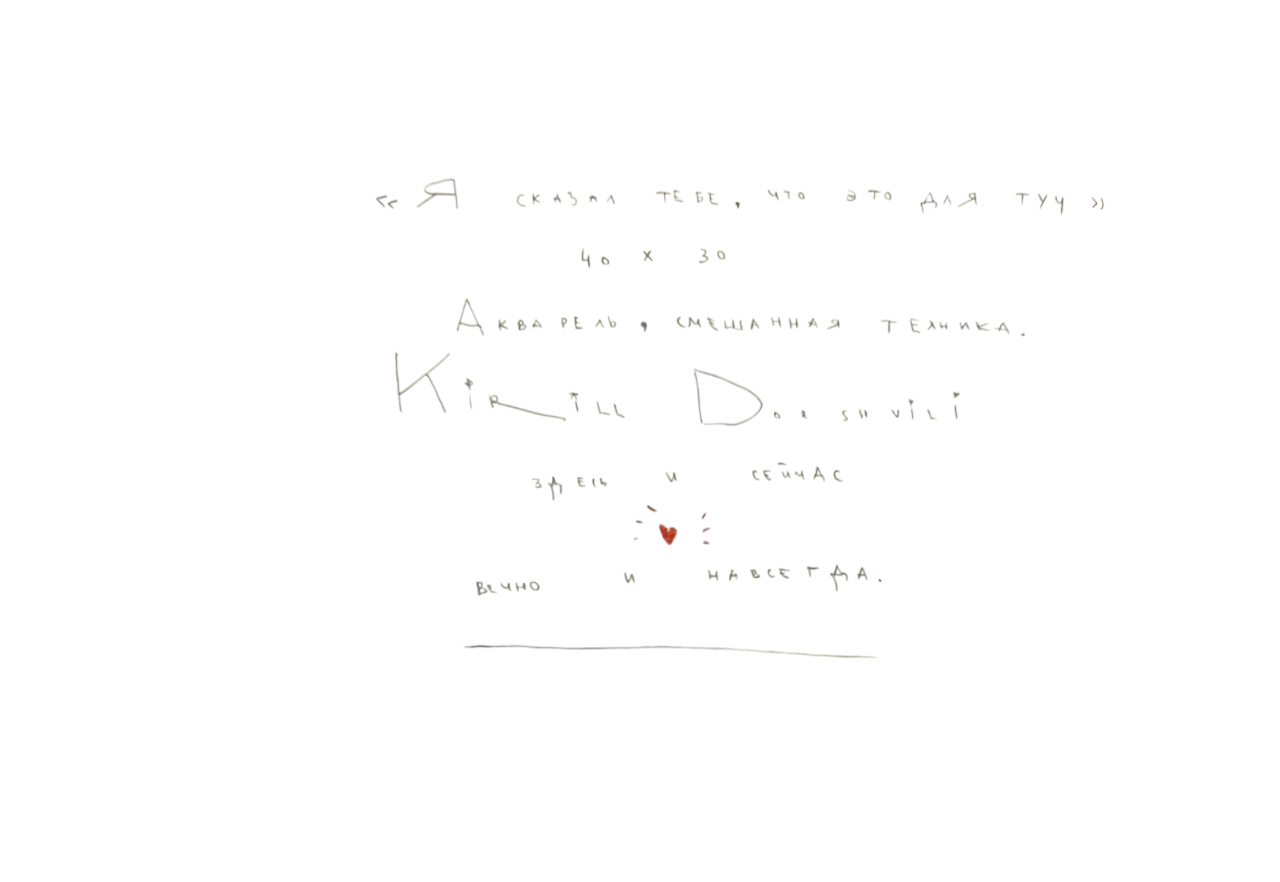 «Я сказал тебе, что это для туч»
40 х 30
Акварель, смешанная техника.
Kirill Dorshvili
здесь и сейчас
вечно и навсегда.